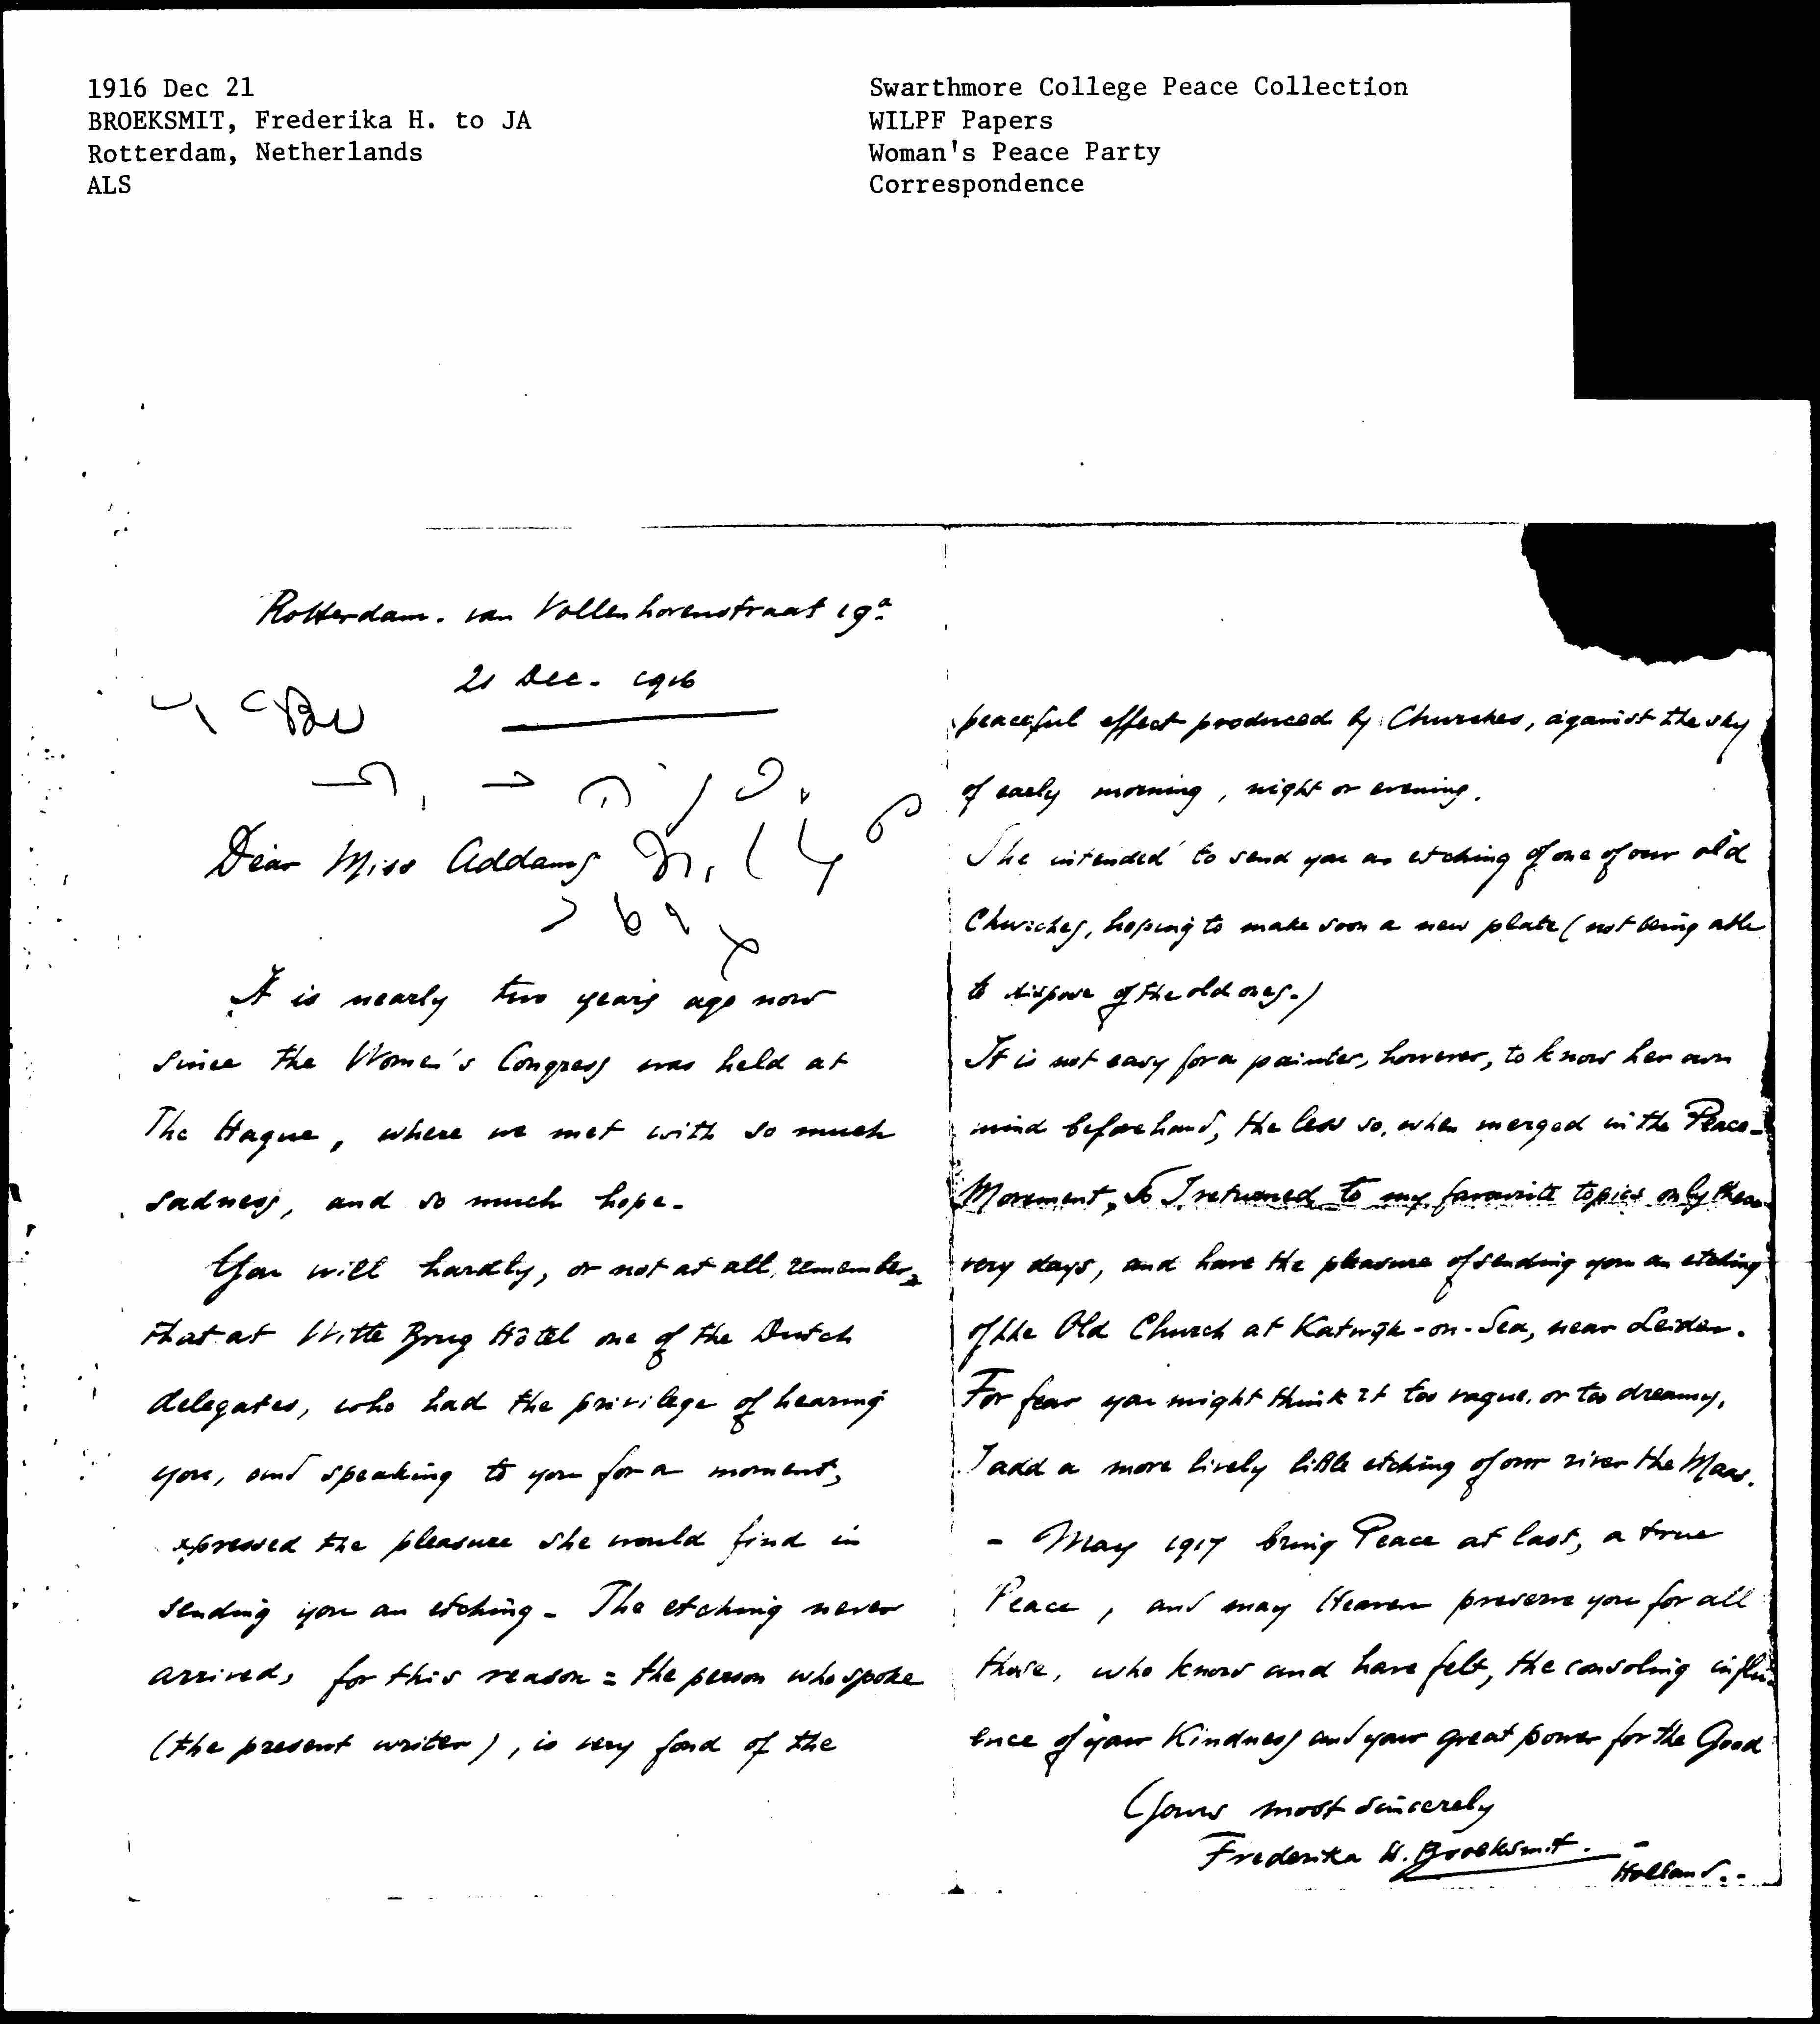 1916 Dec 21
BROEKSMIT, Frederika H. to JA
Rotterdam, Netherlands
ALS
Swarthmore College Peace Collection
WILPF Papers
Woman's Peace Party
Correspondence
Rotterdam. van Vollenhovenstraat 19a
21 Dec. 1916
Dear Miss Addams
It is nearly two years ago now
since the Women's Congress was held at
The Hague, where we met with so much
sadness, and so much hope.
You will hardly, or not at all, remember,
that at Witte Brug Hôtel one of the Dutch
delegates, who had the privilege of hearing
you, and speaking to you for a moment,
expressed the pleasure she would find in
sending you an etching. The etching never
arrived, for this reason = the person who spoke
(the present writer), is very fond of the
peaceful effect produced by Churches, against the sky
of early morning, night or evening.
She intended to send you an etching of one of our old
Churches, hoping to make soon a new plate (not being able
to dispose of the old ones.)
It is not easy for a painter, however, to know her own
mind beforehand, the less so, when merged in the Peace-
Movement, So I returned to my favourite topics only these
very days, and have the pleasure of sending you an etching
of the Old Church at Katwijk-on-Sea, near Leiden.
For fear you might think it too vague, or too dreamy,
I add a more lively little etching of our river the Maas.
- May 1917 bring Peace at last, a true
Peace, and may Heaven preserve you for all
those, who know and have felt, the consoling influ-
ence of your Kindness and your great power for the Good
Yours most sincerely
Frederika H. Broeksmit. -
Holland. -